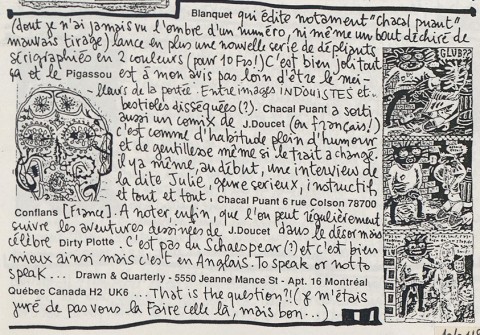 Blanquet qui édite notament "Chacal puant"
(dont je n'ai jamais vu l'ombre d'un numéro, ni même un bout déchiré de
mauvais tirage) lance en plus une nouvelle serie de dépliants
sérigraphiés en 2 couleurs (pour 10 Frs!) C'est bien joli tout
ça et le Pigassou est à mon avis pas loin d'être le mei-
lleurs de la portée. Entre images INDOUISTES et
bestioles disséquées (?). Chacal Puant a sorti
aussi un comix de J.Doucet (en français!)
c'est comme d'habitude plein d'humour
et de gentillesse même si le trait a changé.
il y a même, au début, une interview de
la dite Julie, genre serieux, instructif
et tout et tout. Chacal Puant 6 rue Colson 78700
Conflans [France]. A noter, enfin, que l'on peut régulièrement
suivre les aventures dessinées de J.Doucet dans le désormais
célèbre Dirty Plotte. C'est pas du Schaespear (?) et c'est bien
mieux ainsi mais c'est en Anglais. To speak or not to
speak... Drawn & Quarterly - 5550 Jeanne Mance St - Apt. 16 Montréal
Québec Canada H2 UK6 ...That is the question?!! (je m'étais
juré de pas vous la faire celle là, mais bon...)
GLUB??